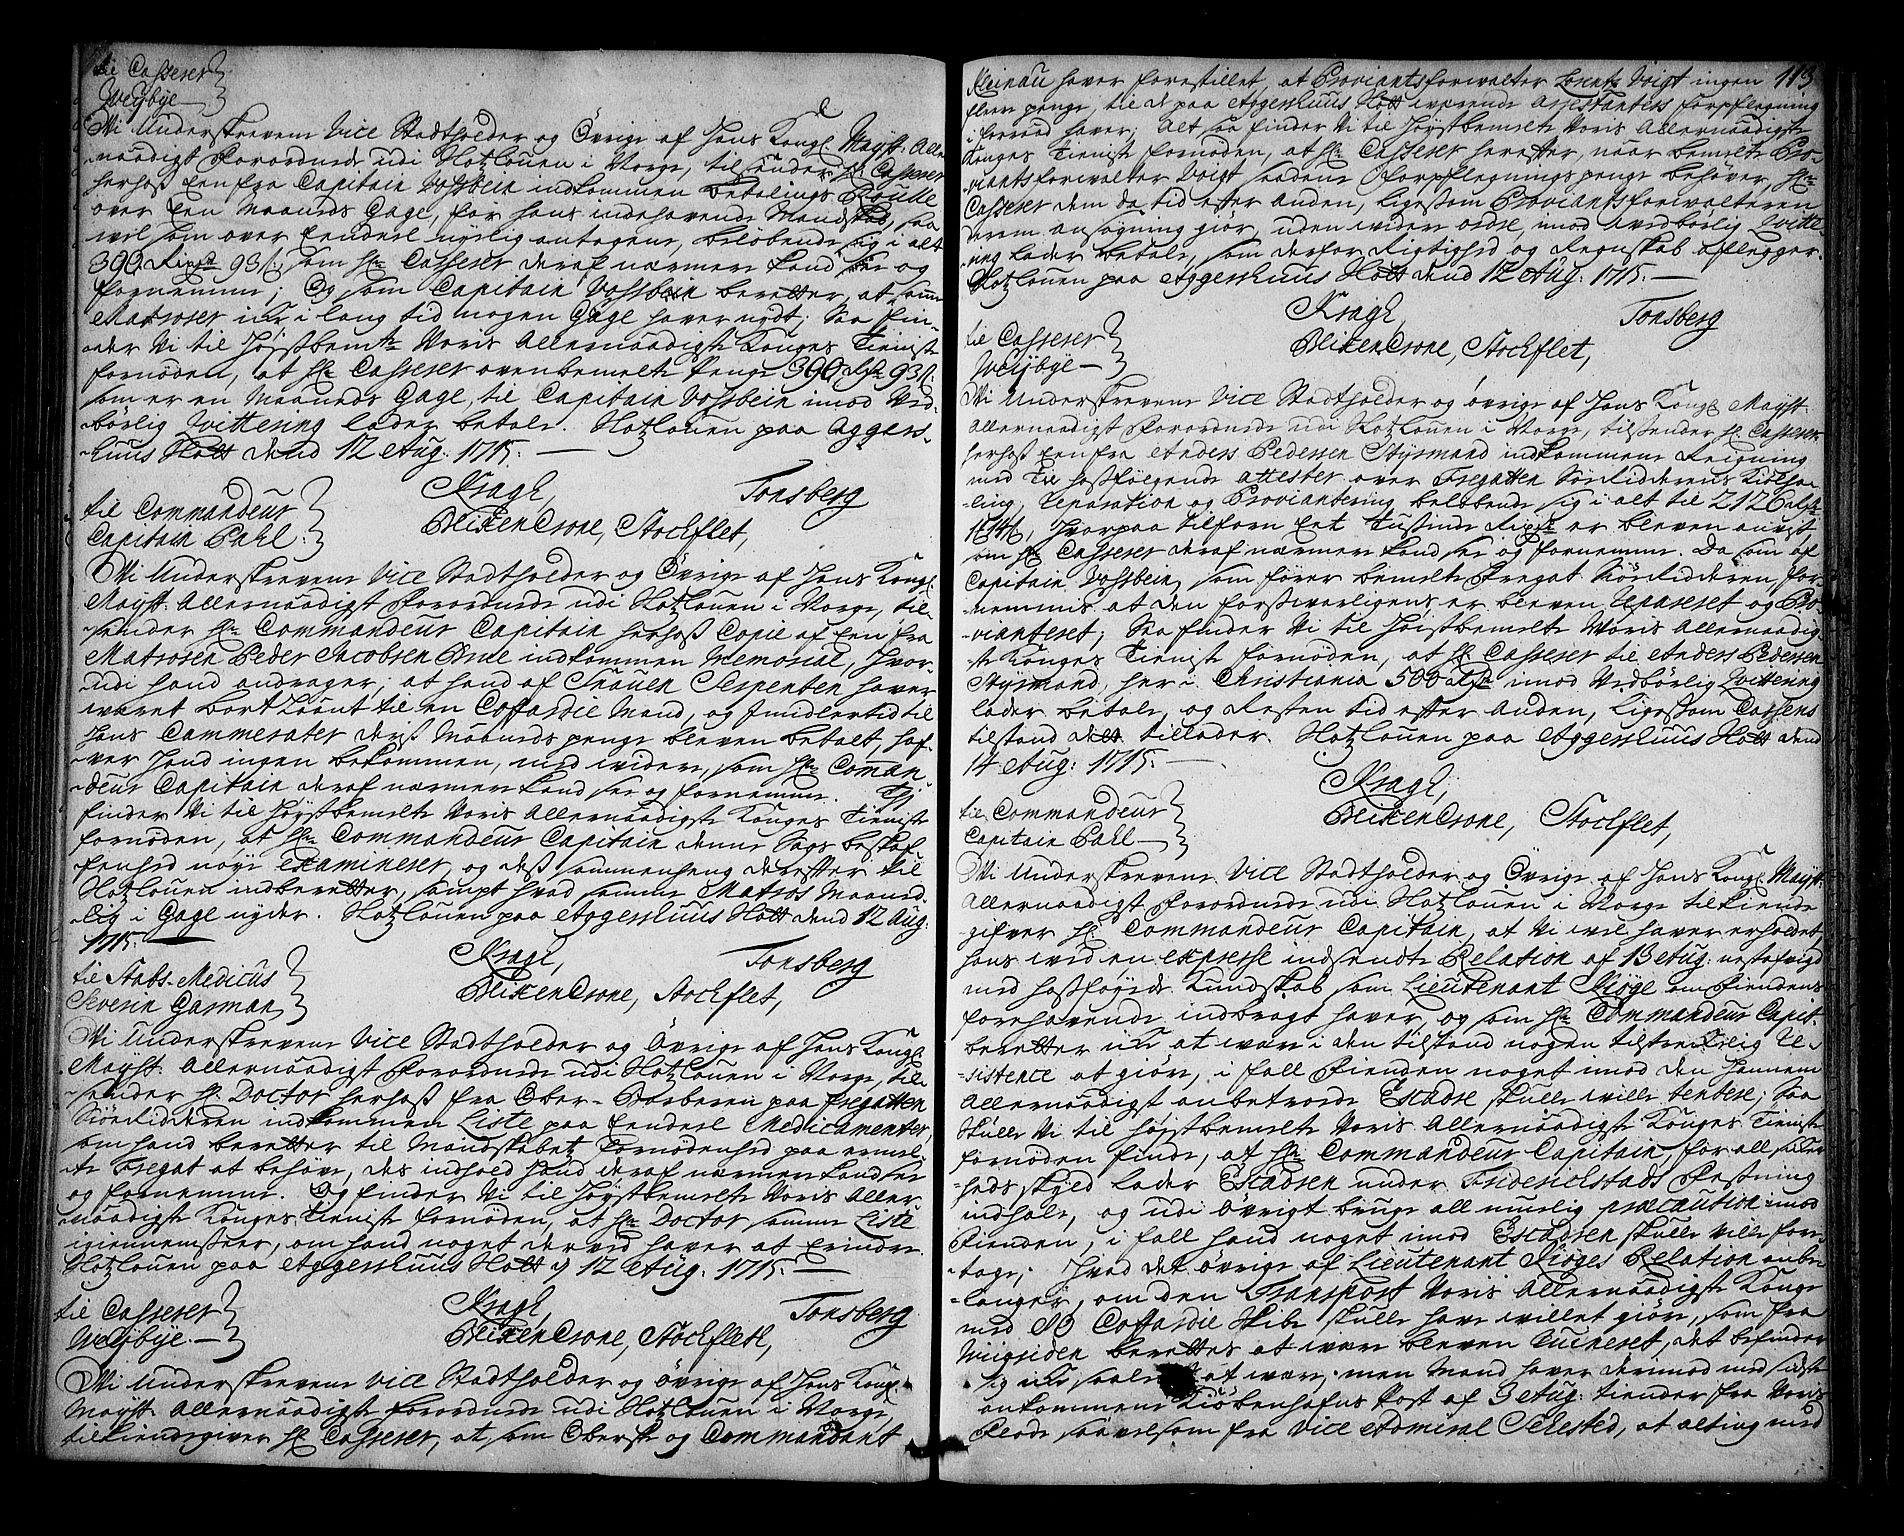 til Casserer
Weybye
Wi Underskrevene Vice Stadtholder og Øvrige af Hans Kongl. Mayst. Aller-
naadigst Forordnede udi Slotzlouen i Norge, tilsender Hr. Casserer
herhoß een fra Capitain Vossbein indkommen betalings Roulle
over een Maaneds Gage, for hans indehavende Mandskab, saa
vel som over Eendeel nyelig antagene, beløbende sig i alt
390 Rixdr 93 s, som Hr. Casserer deraf nærmere kand see og
fornemme; Og som Capitain Vossbein beretter, at samme
Matroser icke i lang tid nogen Gage haver nydt; Saa fin-
der Vi til Høystbemelte Voris Allernaadigste Konges Tieniste
fornøden, at Hr. Casserer ovenbemelte Penge 390 Rdr 93 s.
som er en Maaneds Gage, til Capitain Vossbein imod Ved-
børlig Qvittering lader betale. Slotzlouen paa Aggers-
huus Slott dend 12 Aug. 1715.
Kragh, Tonsberg
BlixenCrone, Stockflet,
til Commandeur
Capitain Pahl.
Wi Underskrevene Vice Stadtholder og Øvrige af Hans Kongl.
Mayst. Allernaadigst Forordnede udi Slotzlouen i Norge, til-
sender Hr. Commandeur Capitain herhoß Copie af een fra
Matrosen Peder Jacobsen Brue indkommen Memorial, hvor-
udi hand andrager, at hand af Snauen Serpenten haver
været bort laant til en Cofardie Mand, og imidlertid til
hans Cammerater deriß Maaneds penge bleven betalt, haf-
ver hand ingen bekommen, med videre, som Hr. Coman-
deur Capitain deraf nærmere kand see og fornemme. Thj
finder Vi til Høystbemelte Voris Allernaadigste Konges Tieniste
fornøden, at Hr. Commandeur Capitain denne Sags beskaf-
fenhed nøye examinerer, og deß sammenheng derefter til
Slotzlouen indberetter, sampt hvad samme Matros Maaned-
lig i Gage nyder. Slotzlouen paa Aggershuus Slott dend 12 Aug.
1715.
Kragh, Tonsberg
BlixenCrone, Stockflet,
til Stabs-Medicus
Severin Garman
Wi Underskrevene Vice Stadtholder og Øvrige af Hans Kongl.
Mayst. Allernaadigst Forordnede udi Slotzlouen i Norge, til-
sender Hr. Doctor herhoß fra Ober-Barberen paa Fregatten
Siøe-Ridderen indkommen Liste paa Eendeel Medicamenter,
som hand beretter til Mandskabets fornødenhed paa bemel-
te Fregat at behøve, des indhold hand deraf nærmere kand see
og fornemme. Og finder Vi til Høystbemelte Voris Aller-
naadigste Konges Tieniste fornøden, at Hr. Doctor samme Liste
igiennemseer, om hand noget derved haver at Erindre.
Slotzlouen paa Aggershuus Slott d 12 Aug. 1715.
Kragh, Tonsberg
BlixenCrone, Stockflet,
til Casserer
Weybye.
Wi Underskrevene Vice Stadtholder og Øvrige af Hans Kongl.
Mayst. Allernaadigst Forordnede udi Slotzlouen i Norge,
tilkiendegiver Hr. Casserer, at, som Oberste og Commandant
113
Kleinau haver forestillet, at Proviantsforvalter Lorentz Voigt ingen
fleere penge, til de paa Aggershuus Slott værende Arrestanters forpflegning
i forraad haver; Alt saa finder Vi til Høystbemelte Voris Allernaadigste
Konges Tieniste fornøden, at Hr. Casserer herefter, naar bemelte Pro-
viantsforvalter Voigt saadene forpflegnings penge behøver, Hr.
Casserer dem da tid efter anden, ligesom Proviantsforvalteren
derom ansøgning giør, uden videre ordre, imod vedbørlig Qvitte-
ring lader betale, som derfor Rigtighed og Regnskab aflegger.
Slotzlouen paa Aggershuus Slott dend 12 Aug. 1715.
Kragh, Tonsberg
BlixenCrone, Stockflet,
til Casserer
Weybye
Wi Underskrevene Vice Stadtholder og Øvrige af Hans Kongl. Mayst.
Allernaadigst Forordnede udi Slotzlouen i Norge, tilsender Hr. Casserer
herhoß een fra Anders Pedersen Styrmand indkommen Reigning
med hosfølgende attester over Fregatten Siøe-Ridderens Kiølha-
ling, Reparation og Proviantering beløbende sig i alt til 2126 Rdr
hvorpaa tilforn Eet Tusinde Rixdr er bleven anvist,
som Hr. Casserer deraf nærmere kand see og fornemme. Da som af
Capitain Vossbein, som fører bemelte Fregat Siøe-Ridderen, for-
nemmis at den forsvarligen er bleven Repareret og Pro-
vianteret; Saa finder Vi til Høystbemelte Voris Allernaadig-
ste Konges Tieniste fornøden, at Hr. Casserer til Anders Pedersen
Styrmand, her i Christiania 500 Rdr imod Vedbørlig Qvittering
lader betale, og Resten tid efter anden, ligesom Cassens
tilstand det tillader. Slotzlouen paa Aggershuus Slott dend
14 Aug: 1715.
Kragh,
BlixenCrone, Stockflet,
til Commandeur
Capitain Pahl
Wi Underskrevene Vice Stadtholder og Øvrige af Hans Kongl. Mayst.
Allernaadigst Forordnede udi Slotzlouen i Norge tilkiende
gifver Hr. Commandeur Capitain, at Vi vel haver erholdet,
hans ved en expresse indsendte Relation af 13 Aug: nestafvigt
med hosføyede Kundskab som Lieutenant Kiøge om Fiendens
forehavende indbragt haver, og som Hr. Commandeur Capit.
beretter icke at være i den tilstand nogen tilstrekkelig Re-
sistence at giøre, i fall Fienden noget imod den hannem
Allernaadigst anbetroede Escadre skulle ville tentere; Saa
skulle Vi til Høystbemelte Voris Allernaadigste Konges Tieniste
fornøden finde, at Hr. Commandeur Capitain, for all sicker-
heds skyld lader Escadren under Friderichstads Fæstning
indhale, og udi øvrigt bruge all muelig præcaution imod
Fienden, i fall hand noget imod Escadren skulle ville fore-
tage; Hvad det øvrige af Lieutenant Kiøges Relation anbe-
langer, om den Transport Voris Allernaadigste Konge
med 80 Coffardie Skibe skulle have villet giøre, som fra
Wiigsiden berettes at være bleven ruineret, det befinder
sig icke saaledes at være, men mand haver derimod med sidst
ankommene Kiøbenhafns Post af 3 Aug: tiender fra Voris
Flode saavelsom fra Vice Admiral Sehested, at alting med